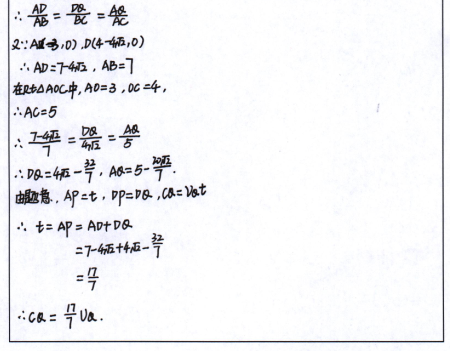 ∴ AD/AB = DQ/BC = AQ/AC
又∵A(-3,0), D(4-4√2,0)
∴ AD=7-4√2, AB=7
在Rt△AOC中, AO=3, OC=4,
∴AC=5
∴ (7-4√2)/7 = DQ/4√2 = AQ/5
∴DQ=4√2-32/7, AQ=5-20√2/7.
由题意, AP=t, DP=DQ, CQ=VQt
∴ t=AP=AD+DQ
=7-4√2+4√2-32/7
=17/7
∴CQ= 17/7 VQ.